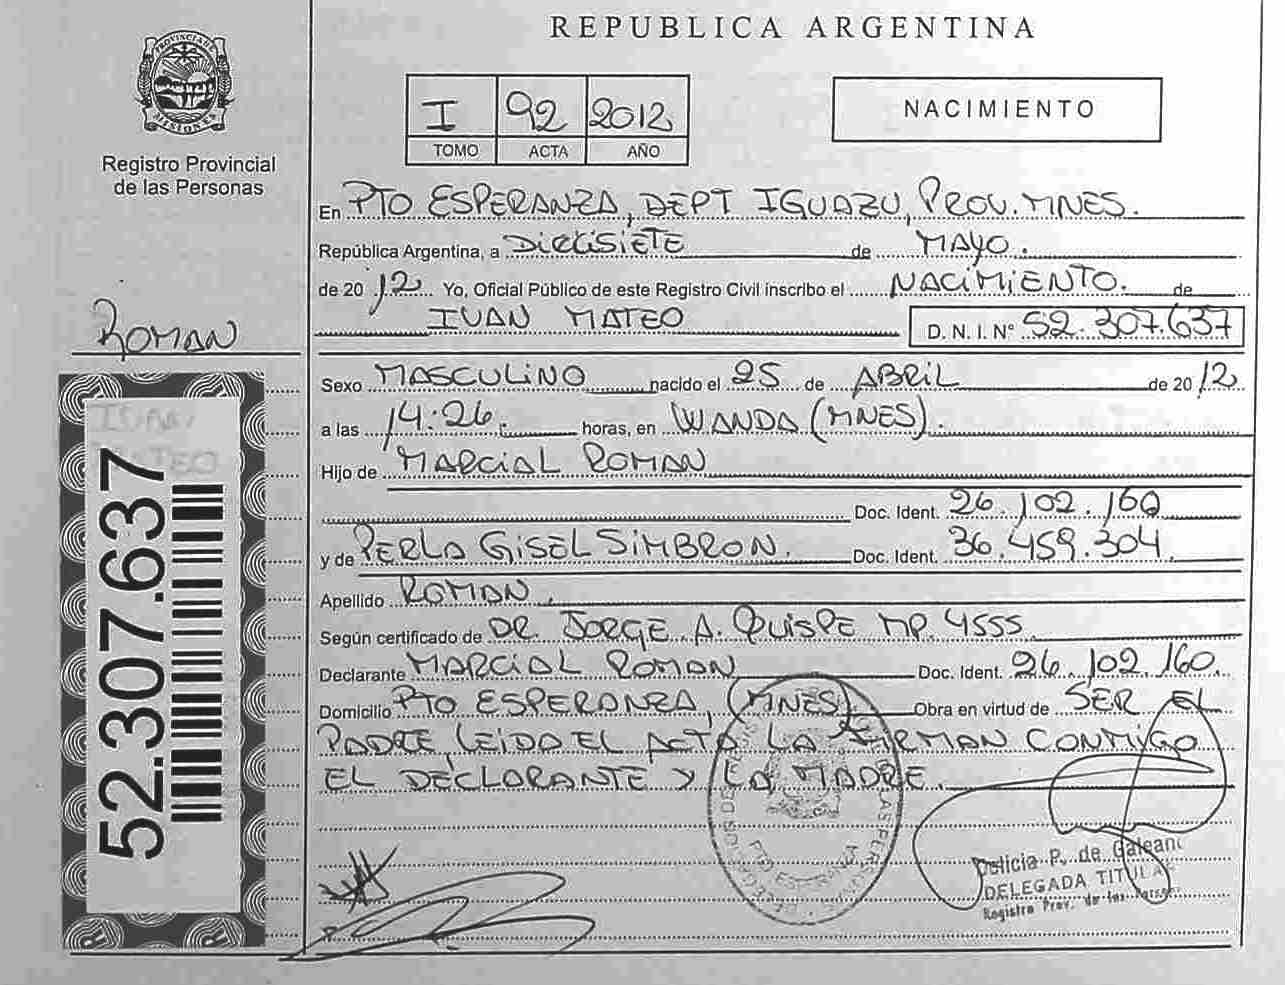 REPUBLICA ARGENTINA
PROVINCIA DE MISIONES
Registro Provincial
de las Personas
I 92 2012
TOMO ACTA AÑO
NACIMIENTO
En PTO ESPERANZA, DEPT IGUAZU, PROV. MNES.
República Argentina, a DIECISIETE de MAYO.
de 2012 Yo, Oficial Público de este Registro Civil inscribo el NACIMIENTO. de
IVAN MATEO D. N. I. Nº 52.307.637
ROMAN
IVAN
MATEO
52.307.637
Sexo MASCULINO nacido el 25 de ABRIL de 2012
a las 14:26. horas, en WANDA (MNES).
Hijo de MARCIAL ROMAN
Doc. Ident. 26.102.160
y de PERLA GISEL SIMBRON. Doc. Ident. 36.459.304
Apellido ROMAN.
Según certificado de DR. JORGE A. QUISPE MP. 4555
Declarante MARCIAL ROMAN Doc. Ident. 26.102.160.
Domicilio PTO ESPERANZA, (MNES) Obra en virtud de SER EL
PADRE, LEIDO EL ACTA LA FIRMAN CONMIGO
EL DECLARANTE Y LA MADRE.
PTO ESPERANZA
Delicia P. de Galeano
DELEGADA TITULAR
Registro Prov. de las Personas